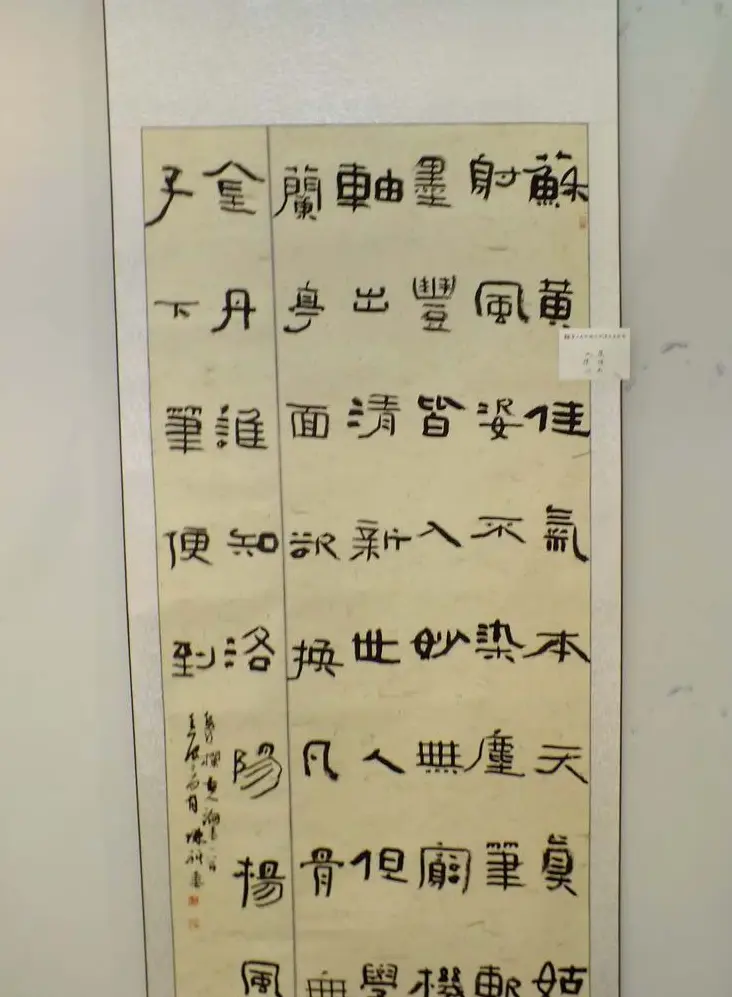 蘇黃佳氣本天真姑
射風姿不染塵筆軟
墨豐皆入妙無窮機
軸出清新世人但學
蘭亭面欲換凡骨無
金丹誰知洛陽楊風
子下筆便到